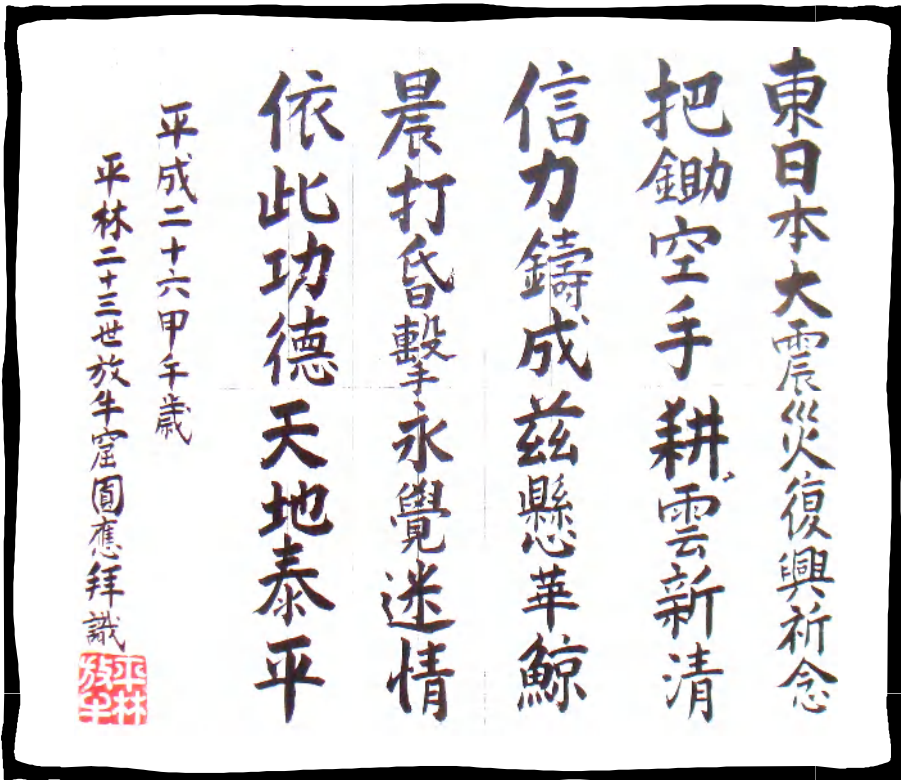 東日本大震災復興祈念
把鋤空手耕雲新清
信力鑄成茲懸華鯨
晨打昏擊永覺迷情
依此功德天地泰平
平成二十六甲午歳
平林二十三世放牛窟圓應拜識
平林
放牛